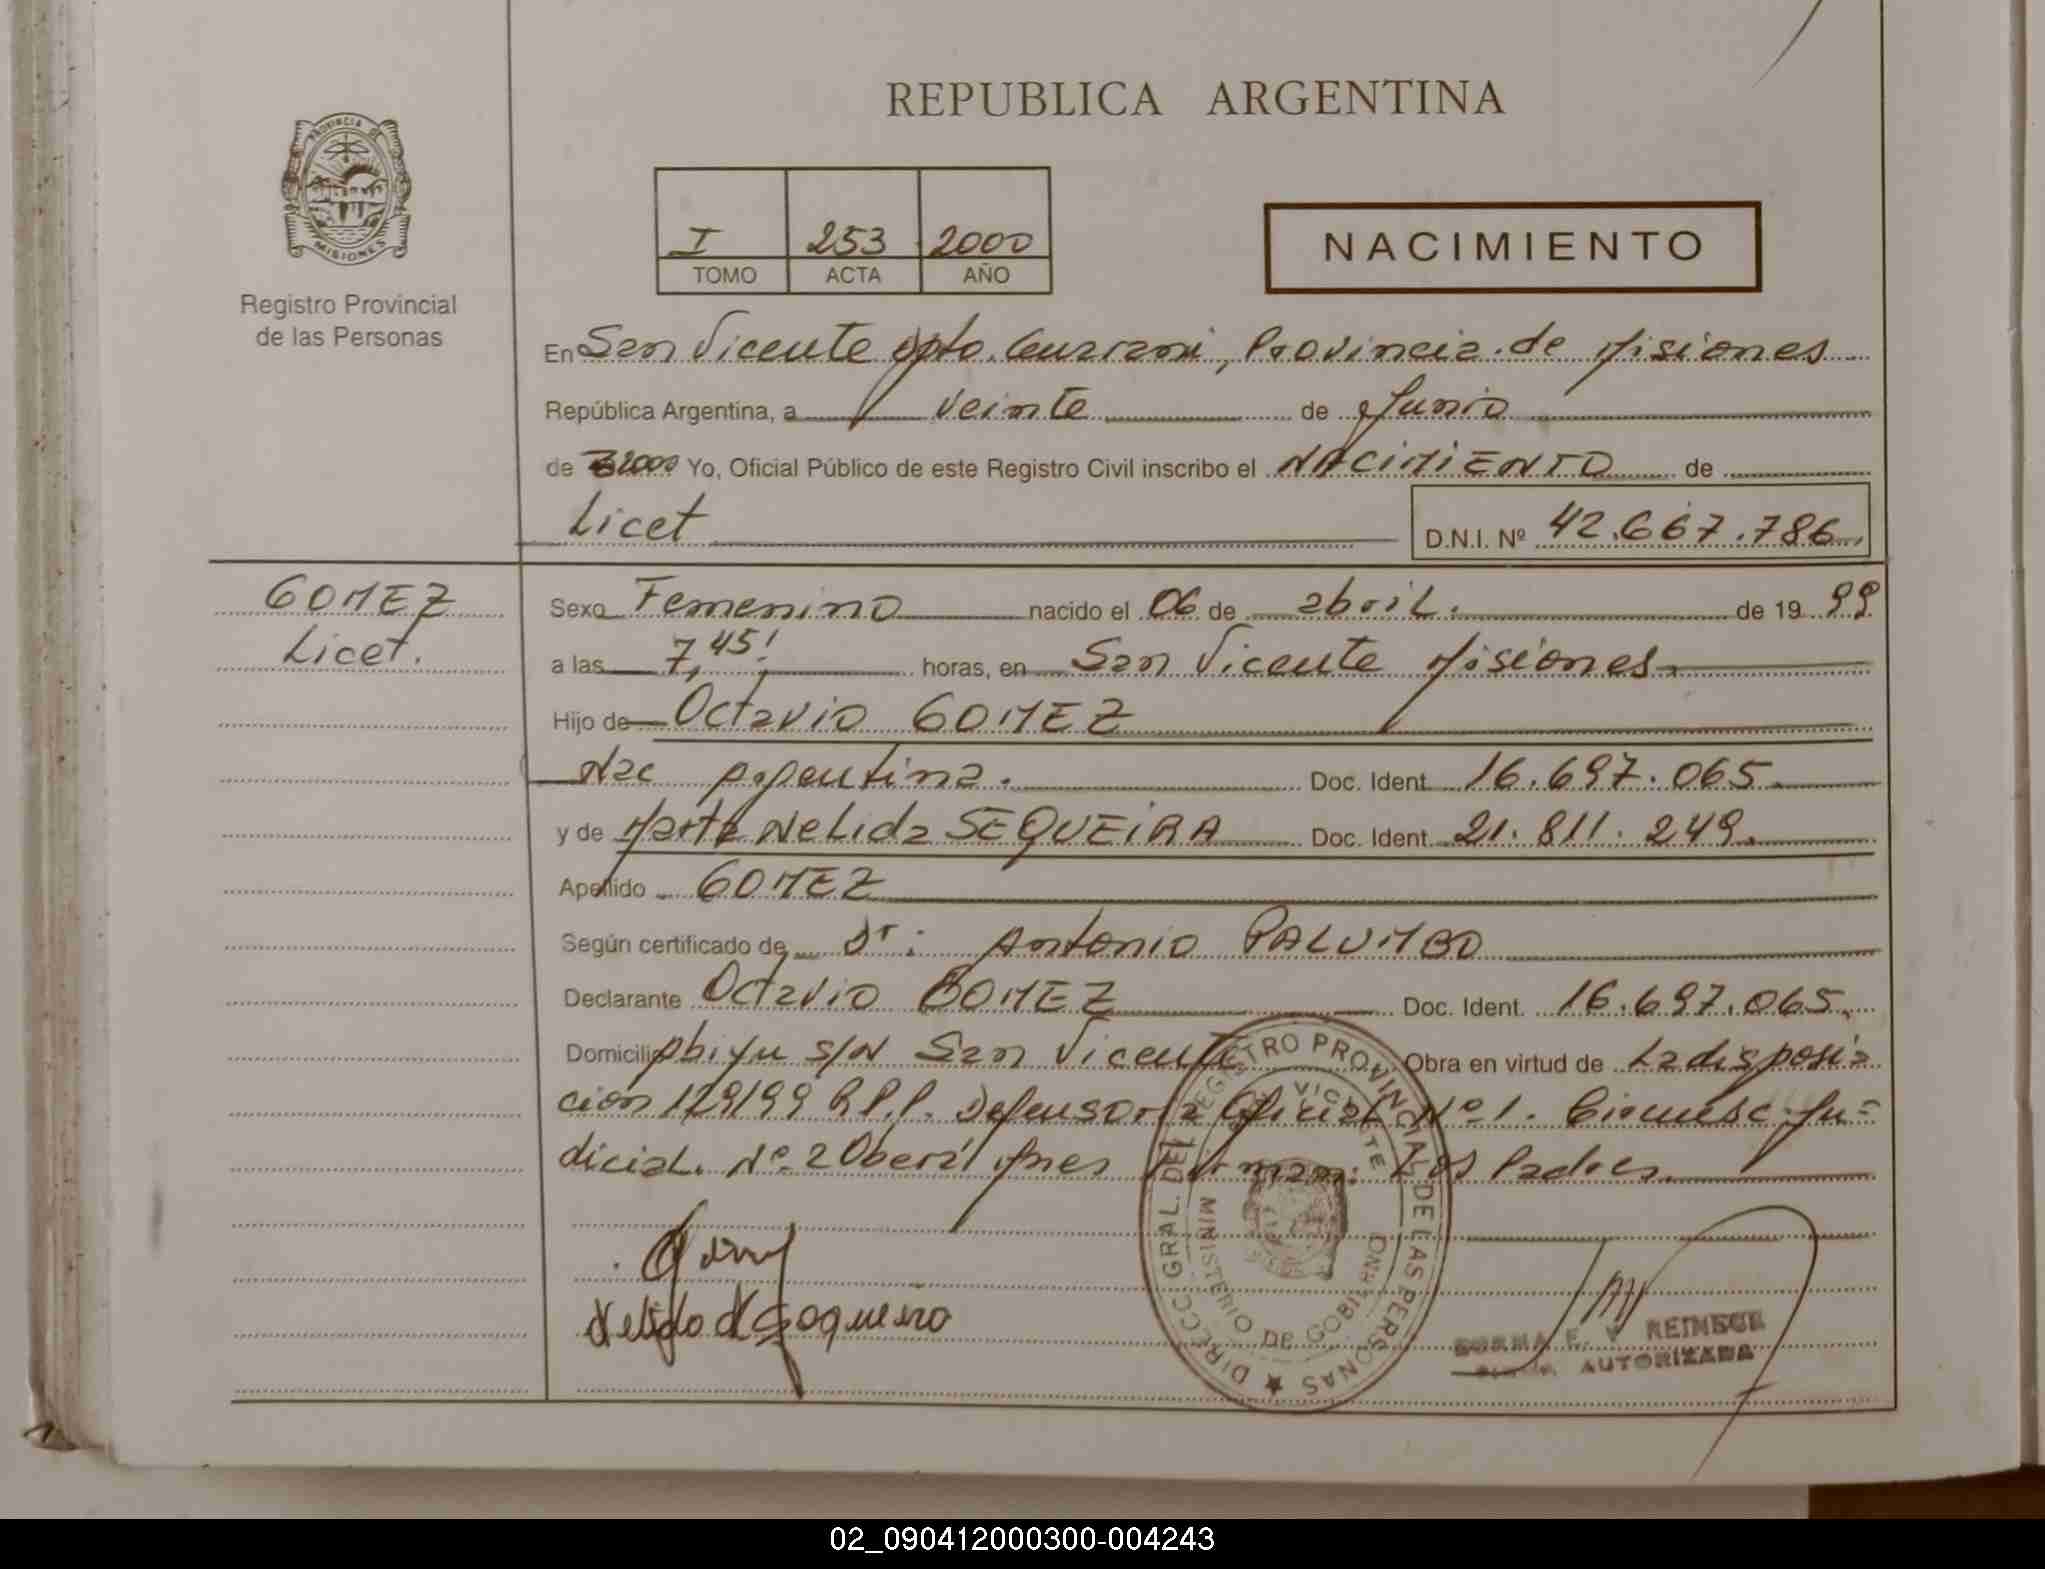 REPUBLICA ARGENTINA
PROVINCIA DE
MISIONES
Registro Provincial
de las Personas
I 253 2000
TOMO ACTA AÑO
NACIMIENTO
En San Vicente Dpto. Guarani, Provincia de Misiones
República Argentina, a veinte de Junio
de 2000 Yo, Oficial Público de este Registro Civil inscribo el NACIMIENTO de
Licet D.N.I. Nº 42.667.786
GOMEZ
Licet.
Sexo Femenino nacido el 06 de abril. de 19 99
a las 7,45! horas, en San Vicente Misiones.
Hijo de Octavio GOMEZ
Nac Argentina. Doc. Ident. 16.697.065.
y de Marta Nelida SEQUEIRA Doc. Ident. 21.811.249.
Apellido GOMEZ
Según certificado de Dr: Antonio PALUMBO
Declarante Octavio GOMEZ Doc. Ident. 16.697.065.
Domicilio s/N San Vicente Obra en virtud de La disposi=
cion 129/99 R.P.P. Defensoria Oficial Nº 1. Circunsc. Ju=
dicial. Nº 2 Oberá Mnes Firman: Los Padres.
DIRECC. GRAL. DEL REGISTRO PROVINCIAL DE LAS PERSONAS
SAN VICENTE
MINISTERIO DE GOBIERNO
E. REIMEUR
AUTORIZADA
02_090412000300-004243